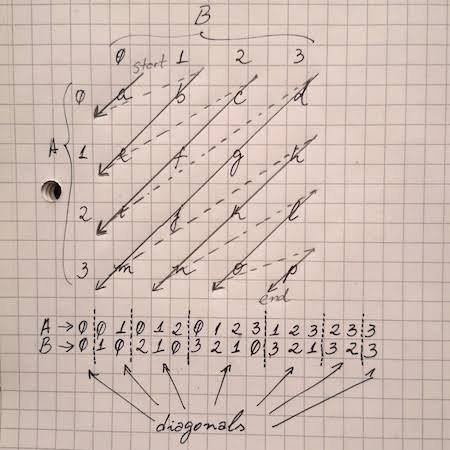 B
0 1 2 3
start
0 a b c d
A
1 e f g h
2 i j k l
3 m n o p
end
A → 0 0 1 0 1 2 0 1 2 3 1 2 3 2 3 3
B → 0 1 0 2 1 0 3 2 1 0 3 2 1 3 2 3
diagonals